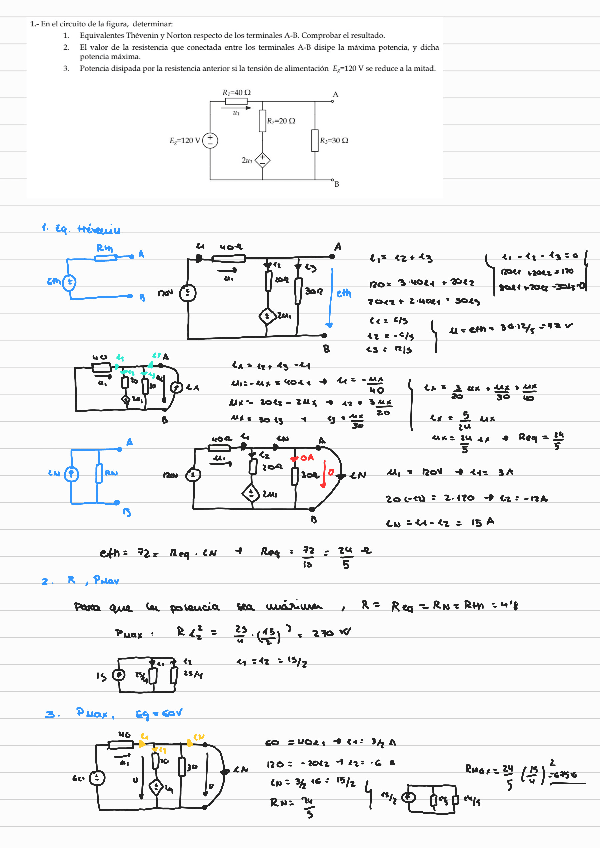 1.- En el circuito de la figura, determinar:
1. Equivalentes Thévenin y Norton respecto de los terminales A-B. Comprobar el resultado.
2. El valor de la resistencia que conectada entre los terminales A-B disipe la máxima potencia, y dicha
potencia máxima.
3. Potencia disipada por la resistencia anterior si la tensión de alimentación Eg=120 V se reduce a la mitad.
R1=40 Ω
A
u1
R2=20 Ω
Eg=120 V
R3=30 Ω
2u1
B
1. Eq. Thévenin
Rth
A
eth
B
i1 40Ω
A
u1
i2
i3
20Ω
30Ω
120V
2u1
eth
B
i1 = i2 + i3
120 = 3·40i1 + 20i2
20i2 + 2·40i1 = 30i3
i1 - i2 - i3 = 0
120i1 + 20i2 = 120
80i1 + 20i2 - 30i3 = 0
i3 = 12/5
u = eth = 30·12/5 = 72 V
40
A
u1
20
30
ix
2u1
B
ix = i2 + i3 - i1
u1 = -ux = 40i1 → i1 = -ux/40
ux = 20i2 - 2ux → i2 = 3ux/20
ux = 30i3 → i3 = ux/30
ix = 3/20 ux + ux/30 + ux/40
ix = 5/24 ux
ux = 24/5 ix → Req = 24/5
iN
RN
A
B
40Ω
i1
iN
A
u1
i2
20Ω
0A
30Ω
0
iN
120V
2u1
B
u1 = 120V → i1 = 3A
20(-i2) = 2·120 → i2 = -12A
iN = i1 - i2 = 15 A
eth = 72 = Req · iN → Req = 72/15 = 24/5 Ω
2. R, Pmax
Para que la potencia sea máxima, R = Req = RN = Rth = 4'8
i1 = i2 = 15/2
3. Pmax, Eg = 60V
40
u1
iN
30
iN
60 = 40i1 → i1 = 3/2 A
iN = 3/2 + 6 = 15/2
RN = 24/5
15/2